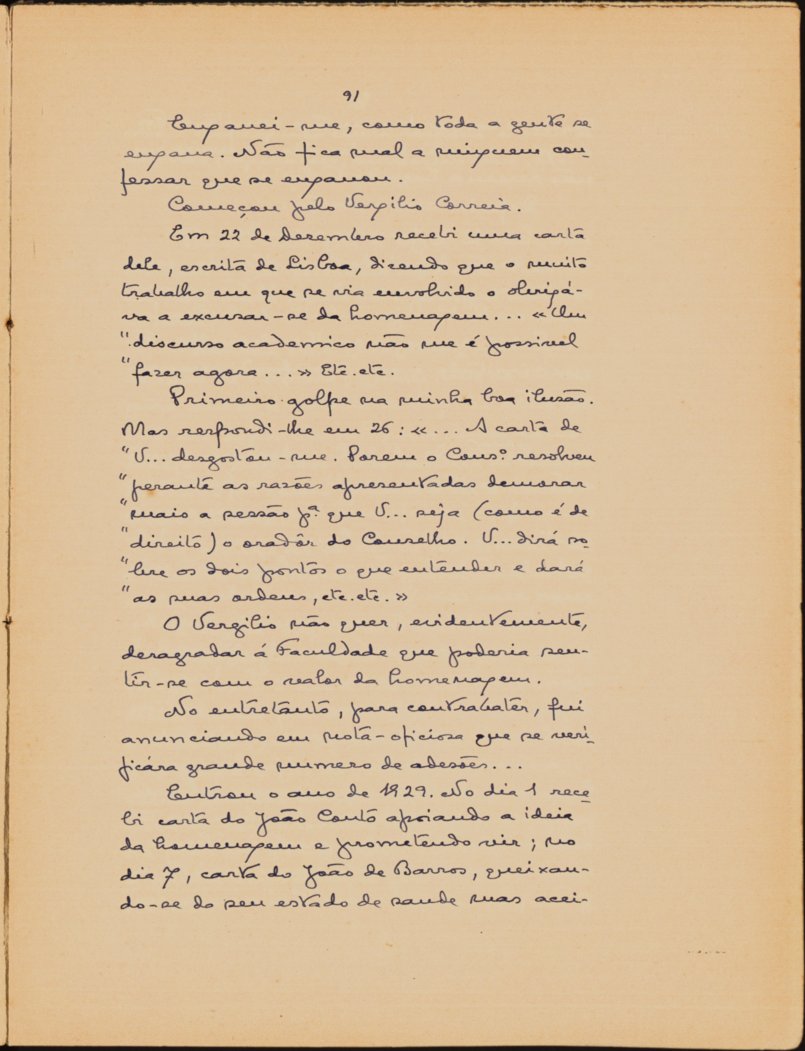 91
Enganei-me, como toda a gente se
engana. Não fica mal a ninguem con-
fessar que se enganou.
Começou pelo Vergilio Correia.
Em 22 de Dezembro recebi uma carta
dele, escrita de Lisboa, dizendo que o muito
trabalho em que se via envolvido o obrigá-
va a excusar-se da homenagem... «Um
"discurso academico não me é possivel
"fazer agora...» Etc. etc.
Primeiro golpe na minha boa ilusão.
Mas respondi-lhe em 26: «... A carta de
"V... desgostou-me. Porem o Cons.º resolveu
"perante as razões apresentadas demorar
"mais a sessão p.ª que V... seja (como é de
"direito) o oradôr do Conselho. V... dirá so-
"bre os dois pontos o que entender e dará
"as suas ordens, etc. etc.»
O Vergilio não quer, evidentemente,
desagradar á Faculdade que poderia sen-
tir-se com o valor da homenagem.
No entretanto, para contrabater, fui
anunciando em nota-oficiosa que se veri-
ficára grande numero de adesões...
Entrou o ano de 1929. No dia 1 rece-
bi carta do João Couto apoiando a ideia
da homenagem e prometendo vir; no
dia 7, carta do João de Barros, queixan-
do-se do seu estado de saude mas acei-